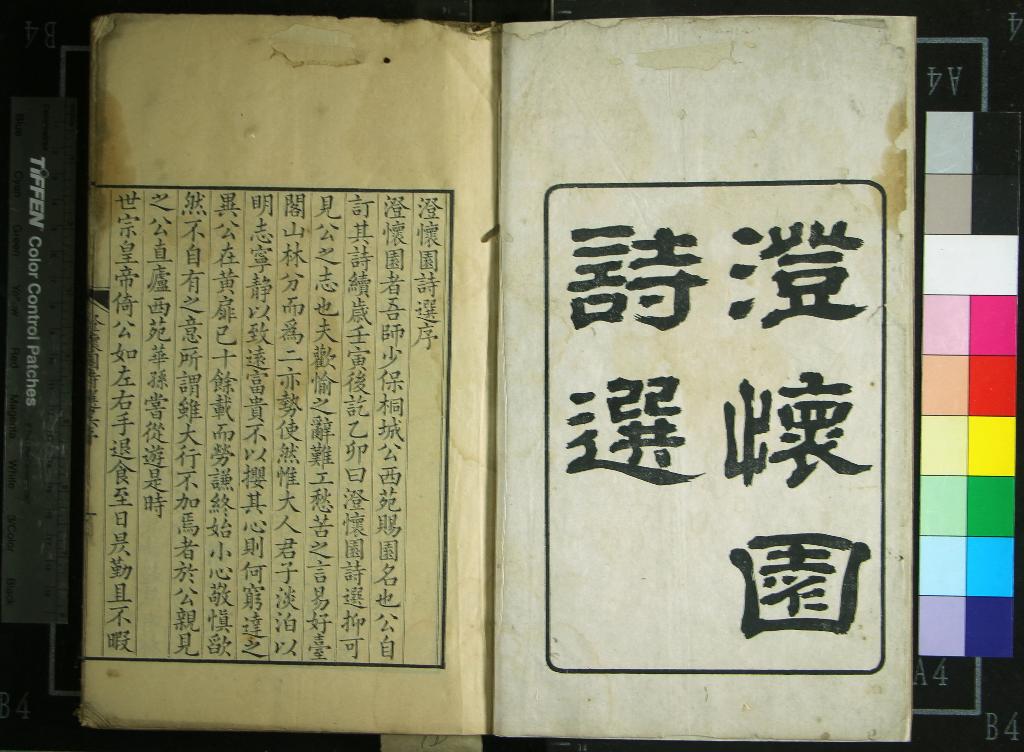 澄懷園
詩選
澄懷園詩選序
澄懷園者吾師少保桐城公西苑賜園名也公自
訂其詩續歲壬寅後訖乙卯曰澄懷園詩選抑可
見公之志也夫歡愉之辭難工愁苦之言易好臺
閣山林分而為二亦勢使然惟大人君子淡泊以
明志寧靜以致遠富貴不以攖其心則何窮達之
異公在黃扉已十餘載而勞謙終始小心敬慎欿
然不自有之意所謂雖大行不加焉者於公親見
之公直廬西苑華孫嘗從遊是時
世宗皇帝倚公如左右手退食至日昃勤且不暇
TIFFEN Color Control Patches
A4
B4
A4
B4
B4